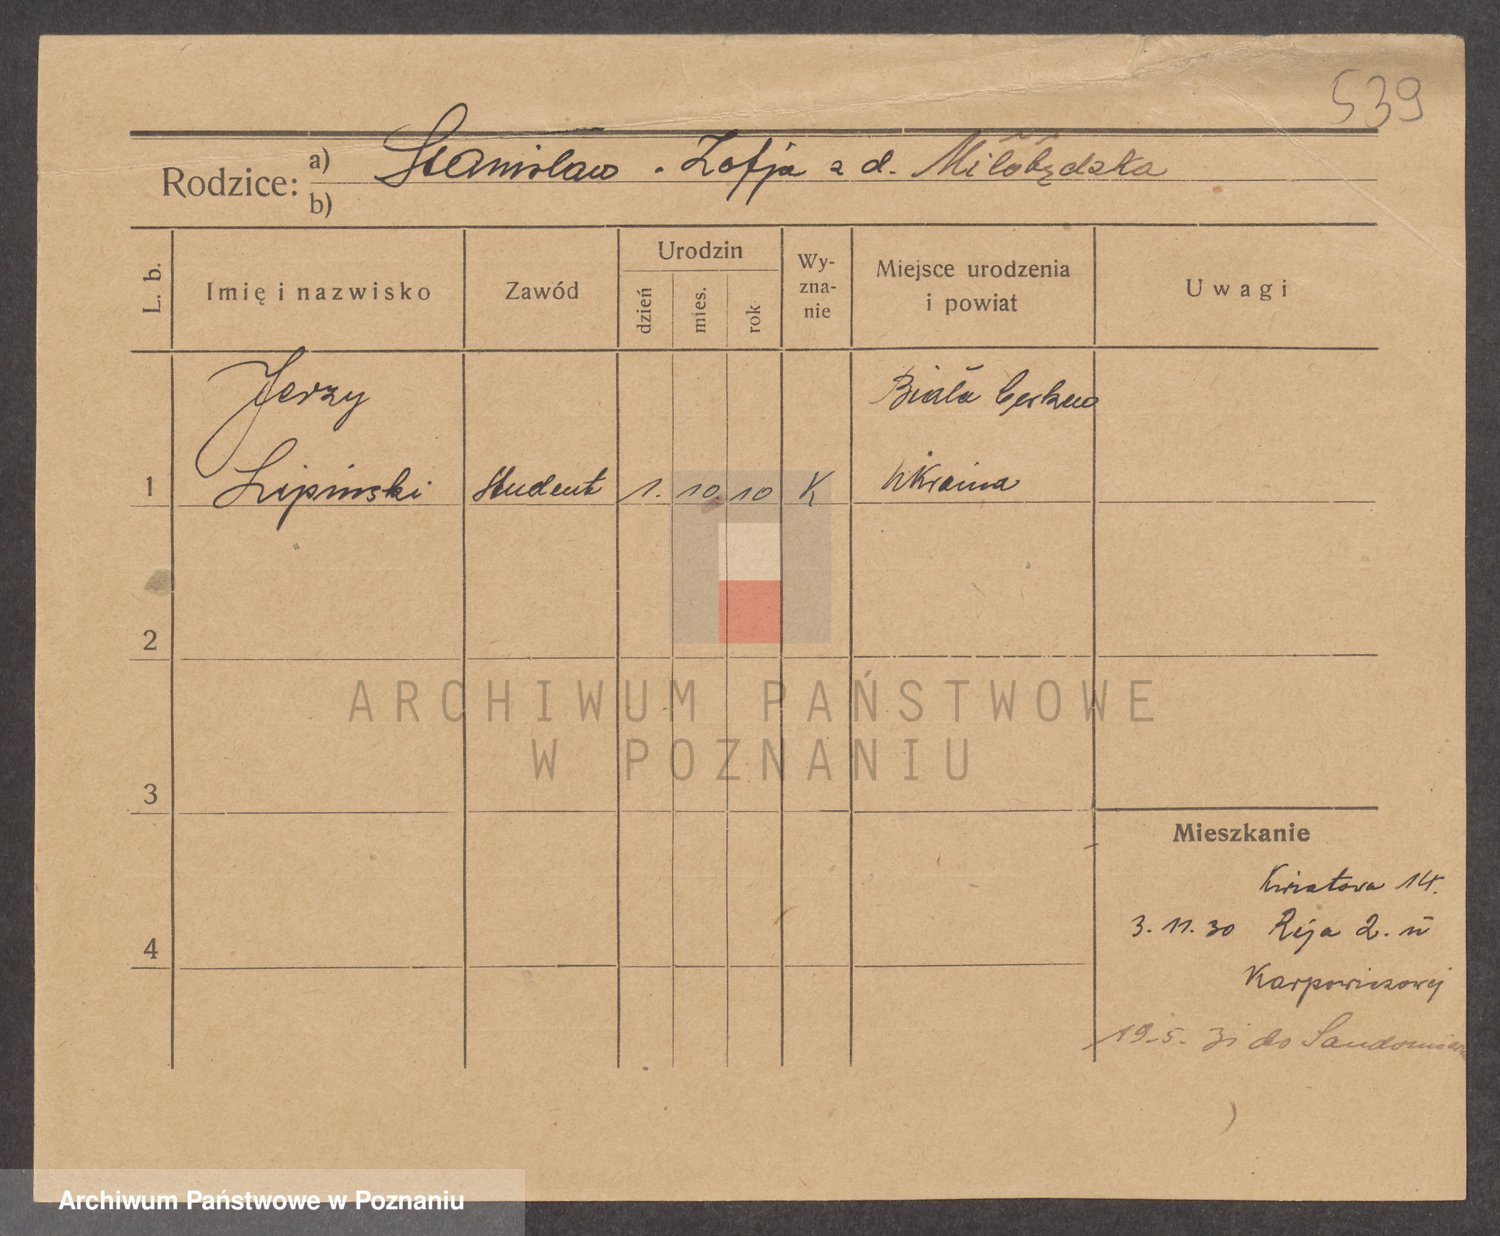 539
Rodzice:
a) Stanisław . Zofja z d. Miłobędzka
b)
L. b.
Imię i nazwisko
Zawód
Urodzin
dzień
mies.
rok
Wy-
zna-
nie
Miejsce urodzenia
i powiat
Uwagi
Jerzy Biała Cerkew
1 Lipiński Student 1. 10. 10 K Ukraina
2
ARCHIWUM PAŃSTWOWE
W POZNANIU
3
Mieszkanie
Kwiatowa 14.
3. 11. 30 Reja 2. II
4
Karpowiczowej
19.5. 31 do Sandomierz
Archiwum Państwowe w Poznaniu